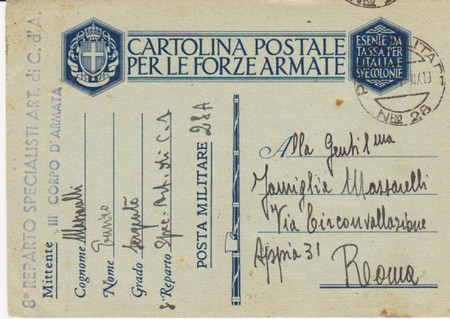 CARTOLINA POSTALE
PER LE FORZE ARMATE
ESENTE DA
TASSA PER
L'ITALIA E
SVE COLONIE
No 28
8° REPARTO SPECIALISTI ART. di C. d'A.
III CORPO D'ARMATA
Mittente
Cognome Massarelli
Nome
Grado Sergente
Reparto 8° Spec. Art. di C. A
POSTA MILITARE 28A
Alla Gentil.ma
Famiglia Massarelli
Via Circonvallazione
Appia 31
Roma